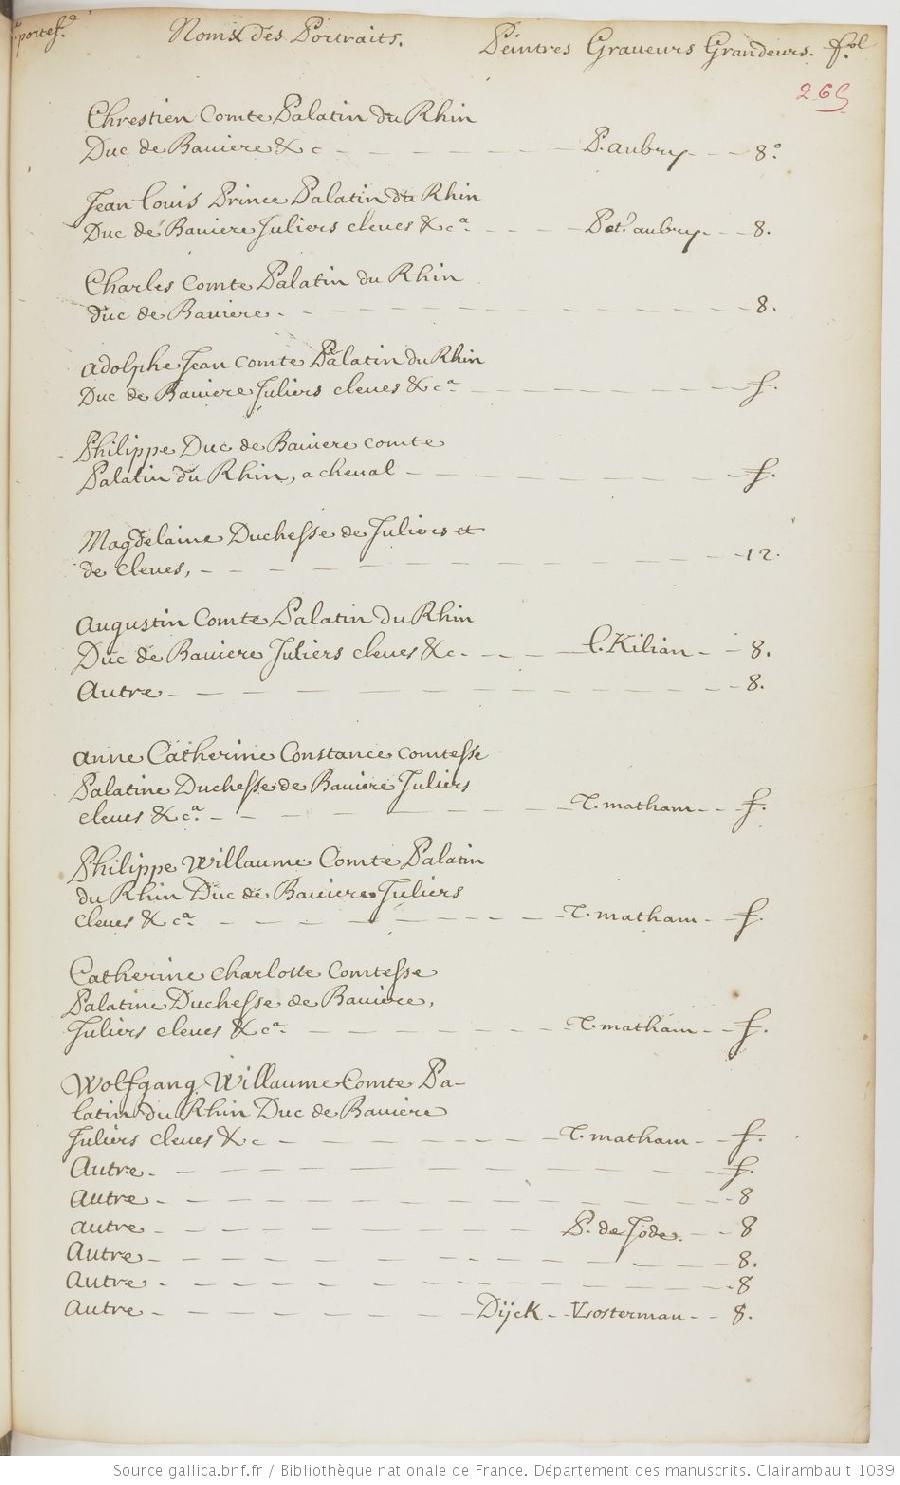 portef.ᵉ Noms des Portraits. Peintres Graveurs Grandeurs. fol.
265
Chrestien Comte Palatin du Rhin
Duc de Baviere &c — P. aubry — 8.°
Jean Louis Prince Palatin du Rhin
Duc de Baviere Juliers cleves &cª — Pet.ʳ aubry — 8.
Charles Comte Palatin du Rhin
duc de Baviere — 8.
adolphe Jean comte Palatin du Rhin
Duc de Baviere Juliers cleves &cª — f.
Philippe Duc de Baviere comte
Palatin du Rhin, a cheval — f.
Magdelaine Duchesse de Juliers et
de cleves, — 12.
Augustin Comte Palatin du Rhin
Duc de Baviere Juliers cleves &c. — L. Kilian — 8.
Autre — 8.
Anne Catherine Constance comtesse
Palatine Duchesse de Baviere Juliers
cleves &cª. — T. matham — f.
Philippe Willaume Comte Palatin
du Rhin Duc de Baviere Juliers
cleves &cª — T. matham — f.
Catherine Charlotte Comtesse
Palatine Duchesse de Baviere,
Juliers cleves &cª — T. matham — f.
Wolfgang Willaume Comte Pa-
latin du Rhin Duc de Baviere
Juliers cleves &c — T. matham — f.
Autre — f.
Autre — 8
Autre — P. de Jode. — 8
Autre — 8.
Autre — 8
Autre — Dijck — Vosterman — 8.
Source gallica.bnf.fr / Bibliothèque nationale de France. Département des manuscrits. Clairambault 1039